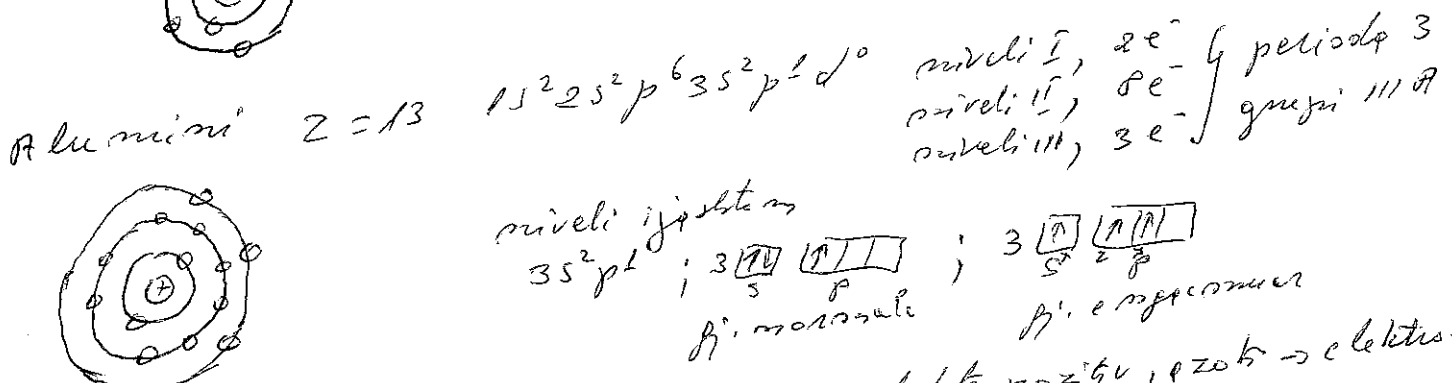 Alumini Z = 13 1s² 2s² p⁶ 3s² p¹ d⁰ niveli I, 2e⁻ } perioda 3
niveli II, 8e⁻
niveli III, 3e⁻ grupi III A
niveli i jashtem
3s² p¹ ; 3 [↑↓] [↑| | ] ; 3 [↑] [↑|↑| ]
s p s p
gj. normale gj. e ngacmuar
pozitiv, azoti → elektro